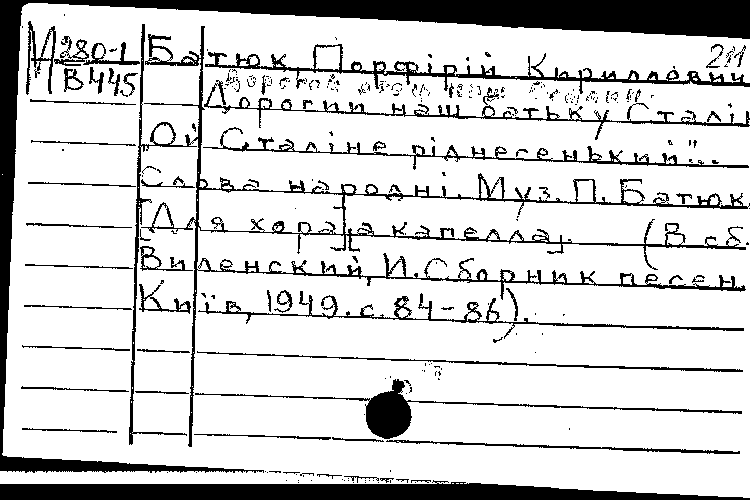 М 280-1
В 445
2М
Батюк, Порфірій Кирилович
Дорогий наш батьку Сталін
"Ой Сталіне ріднесенький"...
Слова народні. Муз. П. Батюк.
[Для хора] [а капелла]. (В сб.
Виленский, И. Сборник песен.
Київ, 1949. с. 84-86).